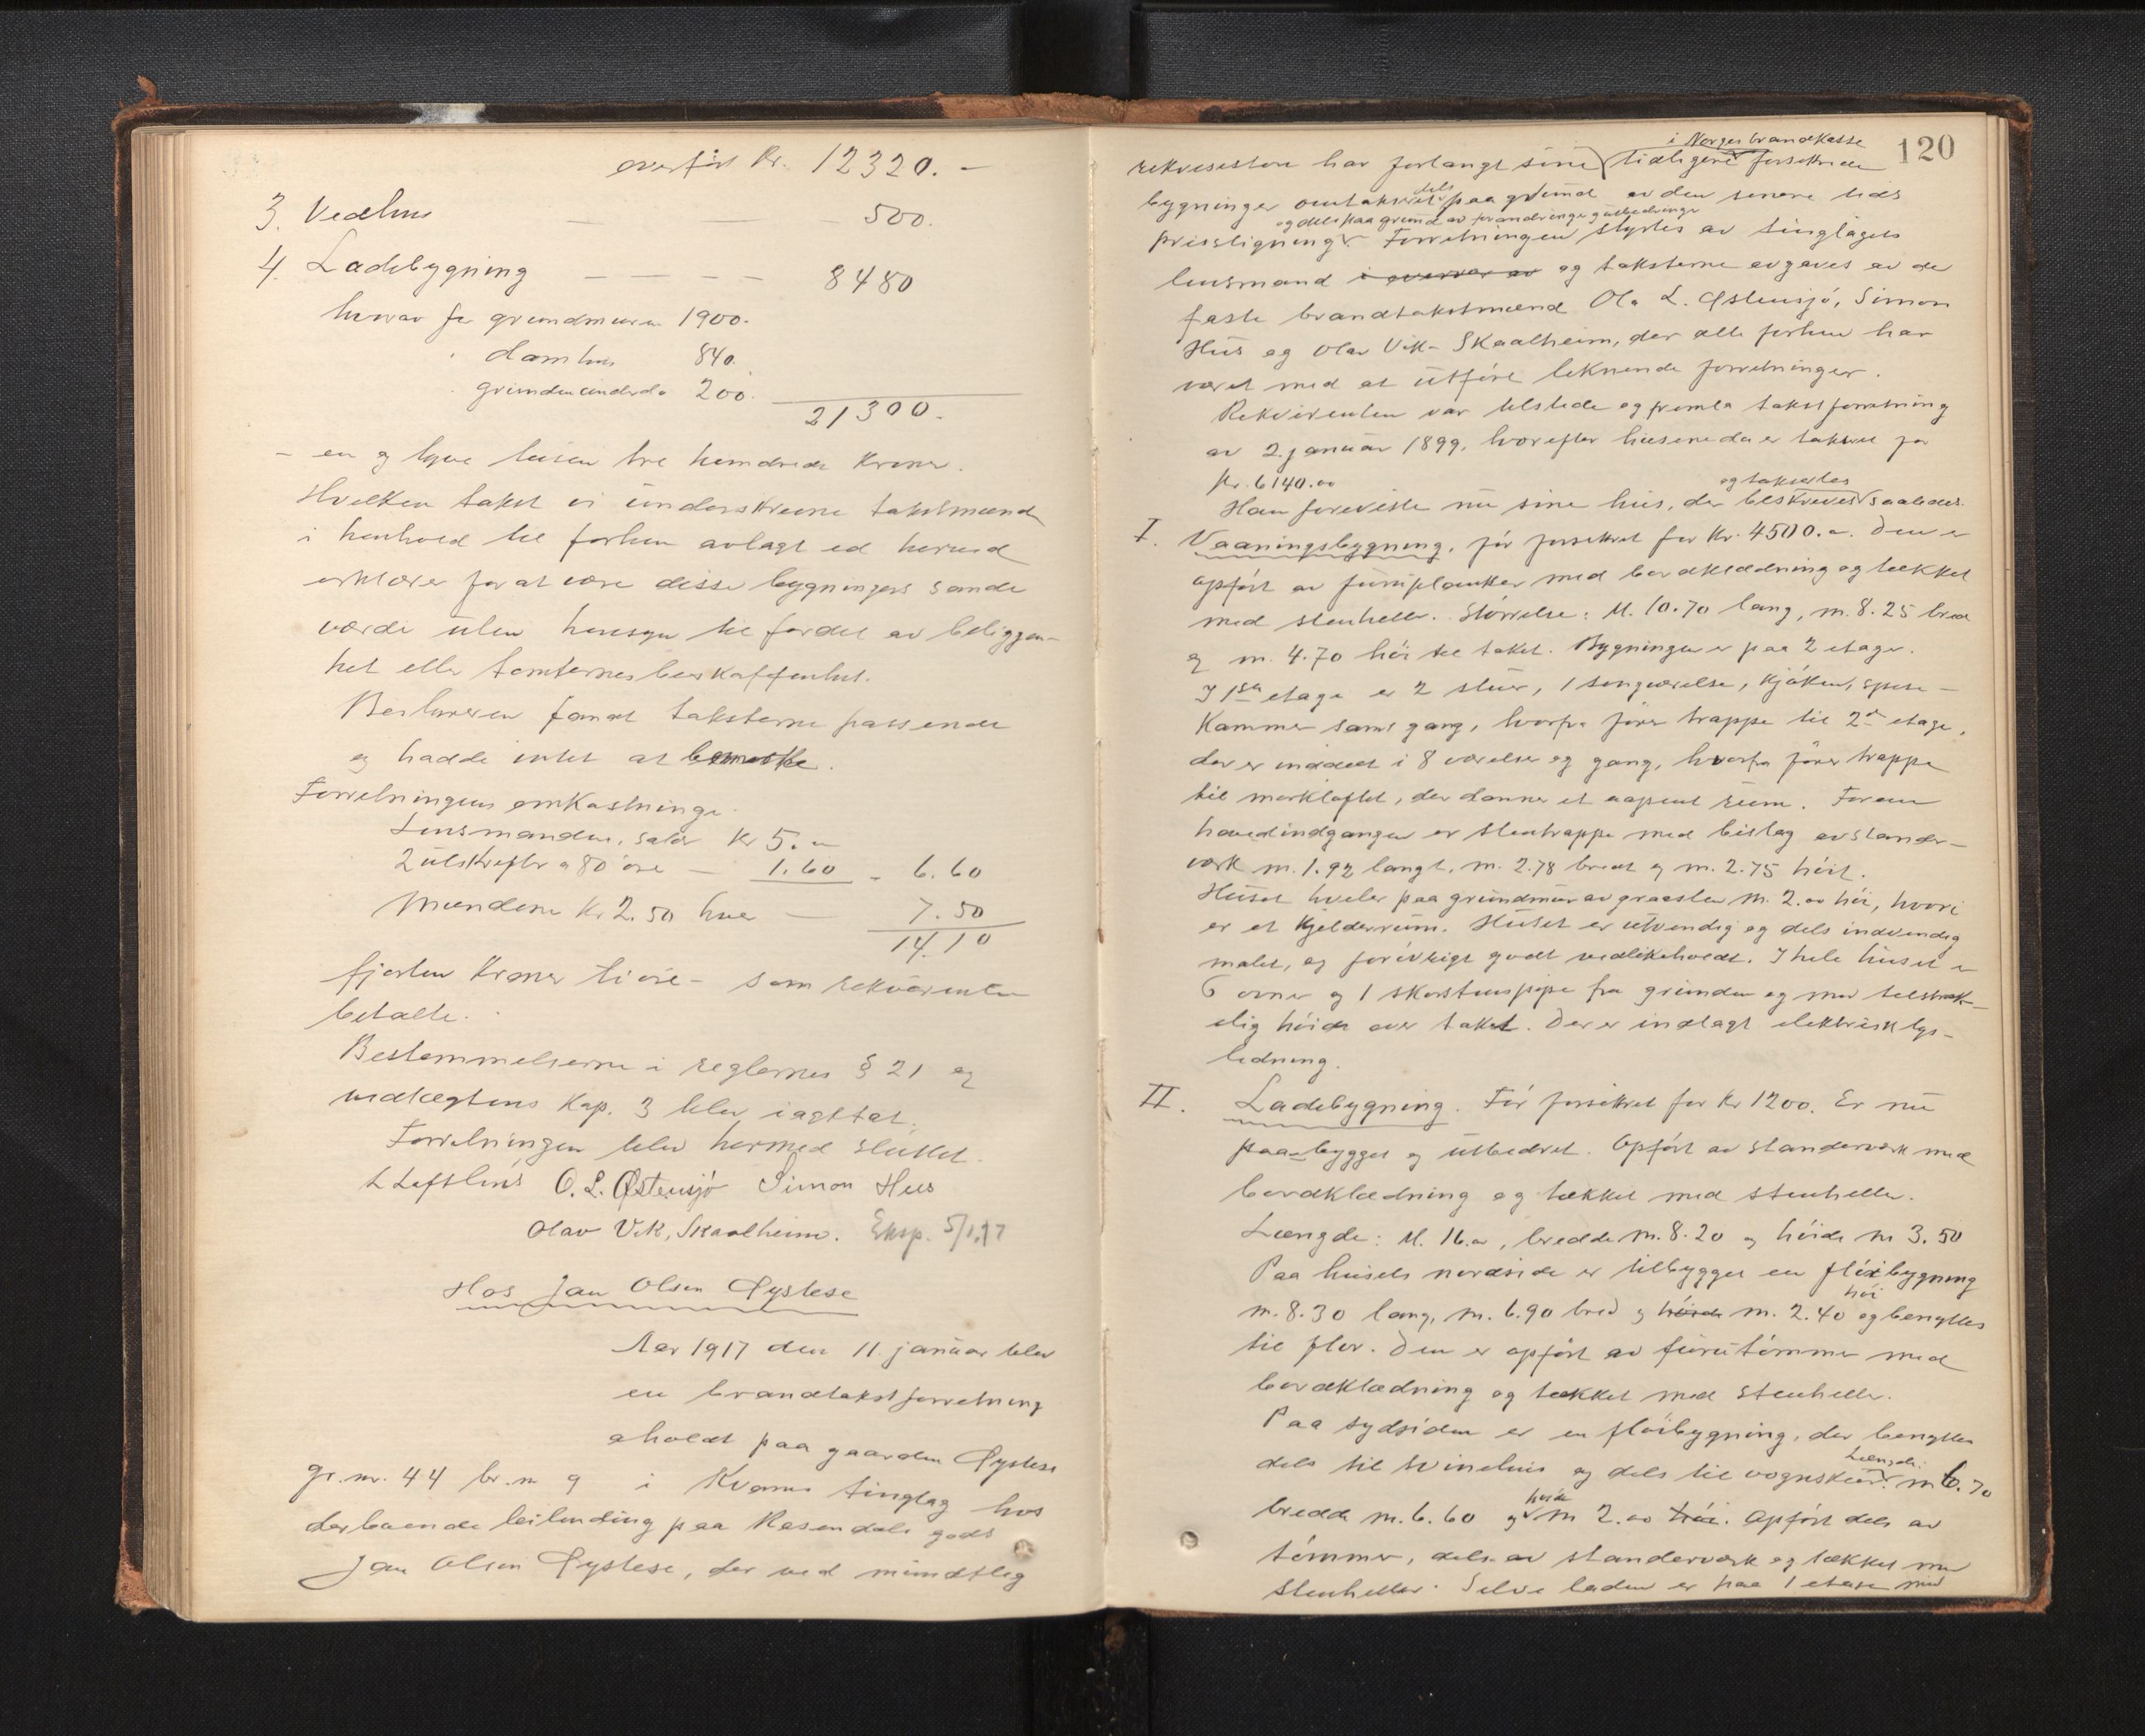 overført Kr. 12320.-
3. Vedhus — 500.
4. Ladebygning — — — — 8480
herav for grundmuren 1900.
" damhus 840.
" grunden under do 200.
21300.
- en og tyve tusen tre hundrede kroner.
Hvilken takst vi underskrevne takstmænd
i henhold til forhen avlagt ed herved
erklærer for at være disse bygningers sande
værdi uten hensyn til fordel av beliggen-
het eller tomternes beskaffenhet.
Bestyreren fandt taksterne passende
og hadde intet at bemerke.
Forretningens omkostninger.
Lensmanden, salær kr 5.00
2 utskrifter a 80 øre — 1.60 - 6.60
Mændene Kr 2.50 hver — 7.50
14.10
fjorten kroner ti øre - som rekvirenten
betalte.
Bestemmelserne i reglernes § 21 og
vedtægtens Kap. 3 blev iagttat.
Forretningen blev hermed sluttet.
L Lofthus O. L. Østensjø Simon Hus
Olav Vik, Skaalheim. Eksp. 5/1.17
Hos Jan Olsen Øystese
Aar 1917 den 11. januar blev
en brandtakstforretning
aholdt paa gaarden Øystese
gr. nr. 44 br. nr 9 i Kvams tinglag hos
derboende leilending paa Rosendals gods
Jan Olsen Øystese, der ved mundtlig
120
i Norges brandkasse
rekvisistion har forlangt sine tidligere forsikrede
bygninger omtaksert dels paa grund av den senere tids
og dels paa grund av forandringer og utbedringer
prisstigning. Forretningen styrtes av tinglagets
lensmand i overvær av og taksterne avgaves av de
faste brandtakstmænd Ola L. Østensjø, Simon
Hus og Olav Vik - Skaalheim, der alle forhen har
været med at utføre liknende forretninger.
Rekvirenten var tilstede og fremla takstforretning
av 2. januar 1899, hvorefter husene da er taksert for
Kr. 6140.00
og taksertes
Han foreviste nu sine hus, der beskreves saaledes.
I. Vaaningsbygning, før forsikret for Kr. 4500.00. Den er
opført av furuplanker med bordklædning og tækket
med stenheller. Størrelse: M. 10.70 lang, m. 8.25 bred
og m. 4.70 høi til taket. Bygningen er paa 2 etager.
I 1ste etage er 2 stuer, 1 sengværelse, kjøken, spise-
kammer samt gang, hvorfra fører trappe til 2den etage,
der er inddelt i 8 værelser og gang, hvorfra fører trappe
til mørkloftet, der danner et aapent rum. Foran
hovedindgangen er stentrappe med bislag av stander-
værk m. 1.92 langt, m. 2.78 bredt og m. 2.75 høit.
Huset hviler paa grundmur av graasten m. 2.00 høi, hvori
er et kjelderrum. Huset er utvendig og dels indvendig
malet, og forøvrigt godt vedlikeholdt. I hele huset er
6 ovner og 1 skorstenspipe fra grunden og med tilstræk-
elig høide over taket. Der er indlagt elektrisk lys-
ledning.
II. Ladebygning. Før forsikret for Kr 1200. Er nu
paabygget og utbedret. Opført av standerværk med
bordklædning og tækket med stenheller.
Længde: M. 16.00, bredde m. 8.20 og høide m 3.50
Paa husets nordside er tilbygget en fløibygning
m. 8.30 lang, m. 6.90 bred og høide m. 2.40 høi og benyttes
til flor. Den er opført av furutømmer med
bordklædning og tækket med stenheller.
Paa sydsiden er en fløibygning, der benyttes
dels til svinehus og dels til vognskur. Længde: m 6.70
bredde m. 6.60 og høide m 2.00 høi. Opført dels av
tømmer, dels av standerværk og tækket med
stenheller. Selve laden er paa 1 etage med